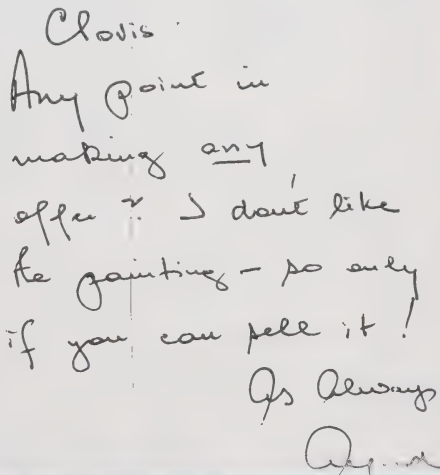 Clovis.
Any point in
making any
offer? I don't like
the painting - so only
if you can sell it!
As Always